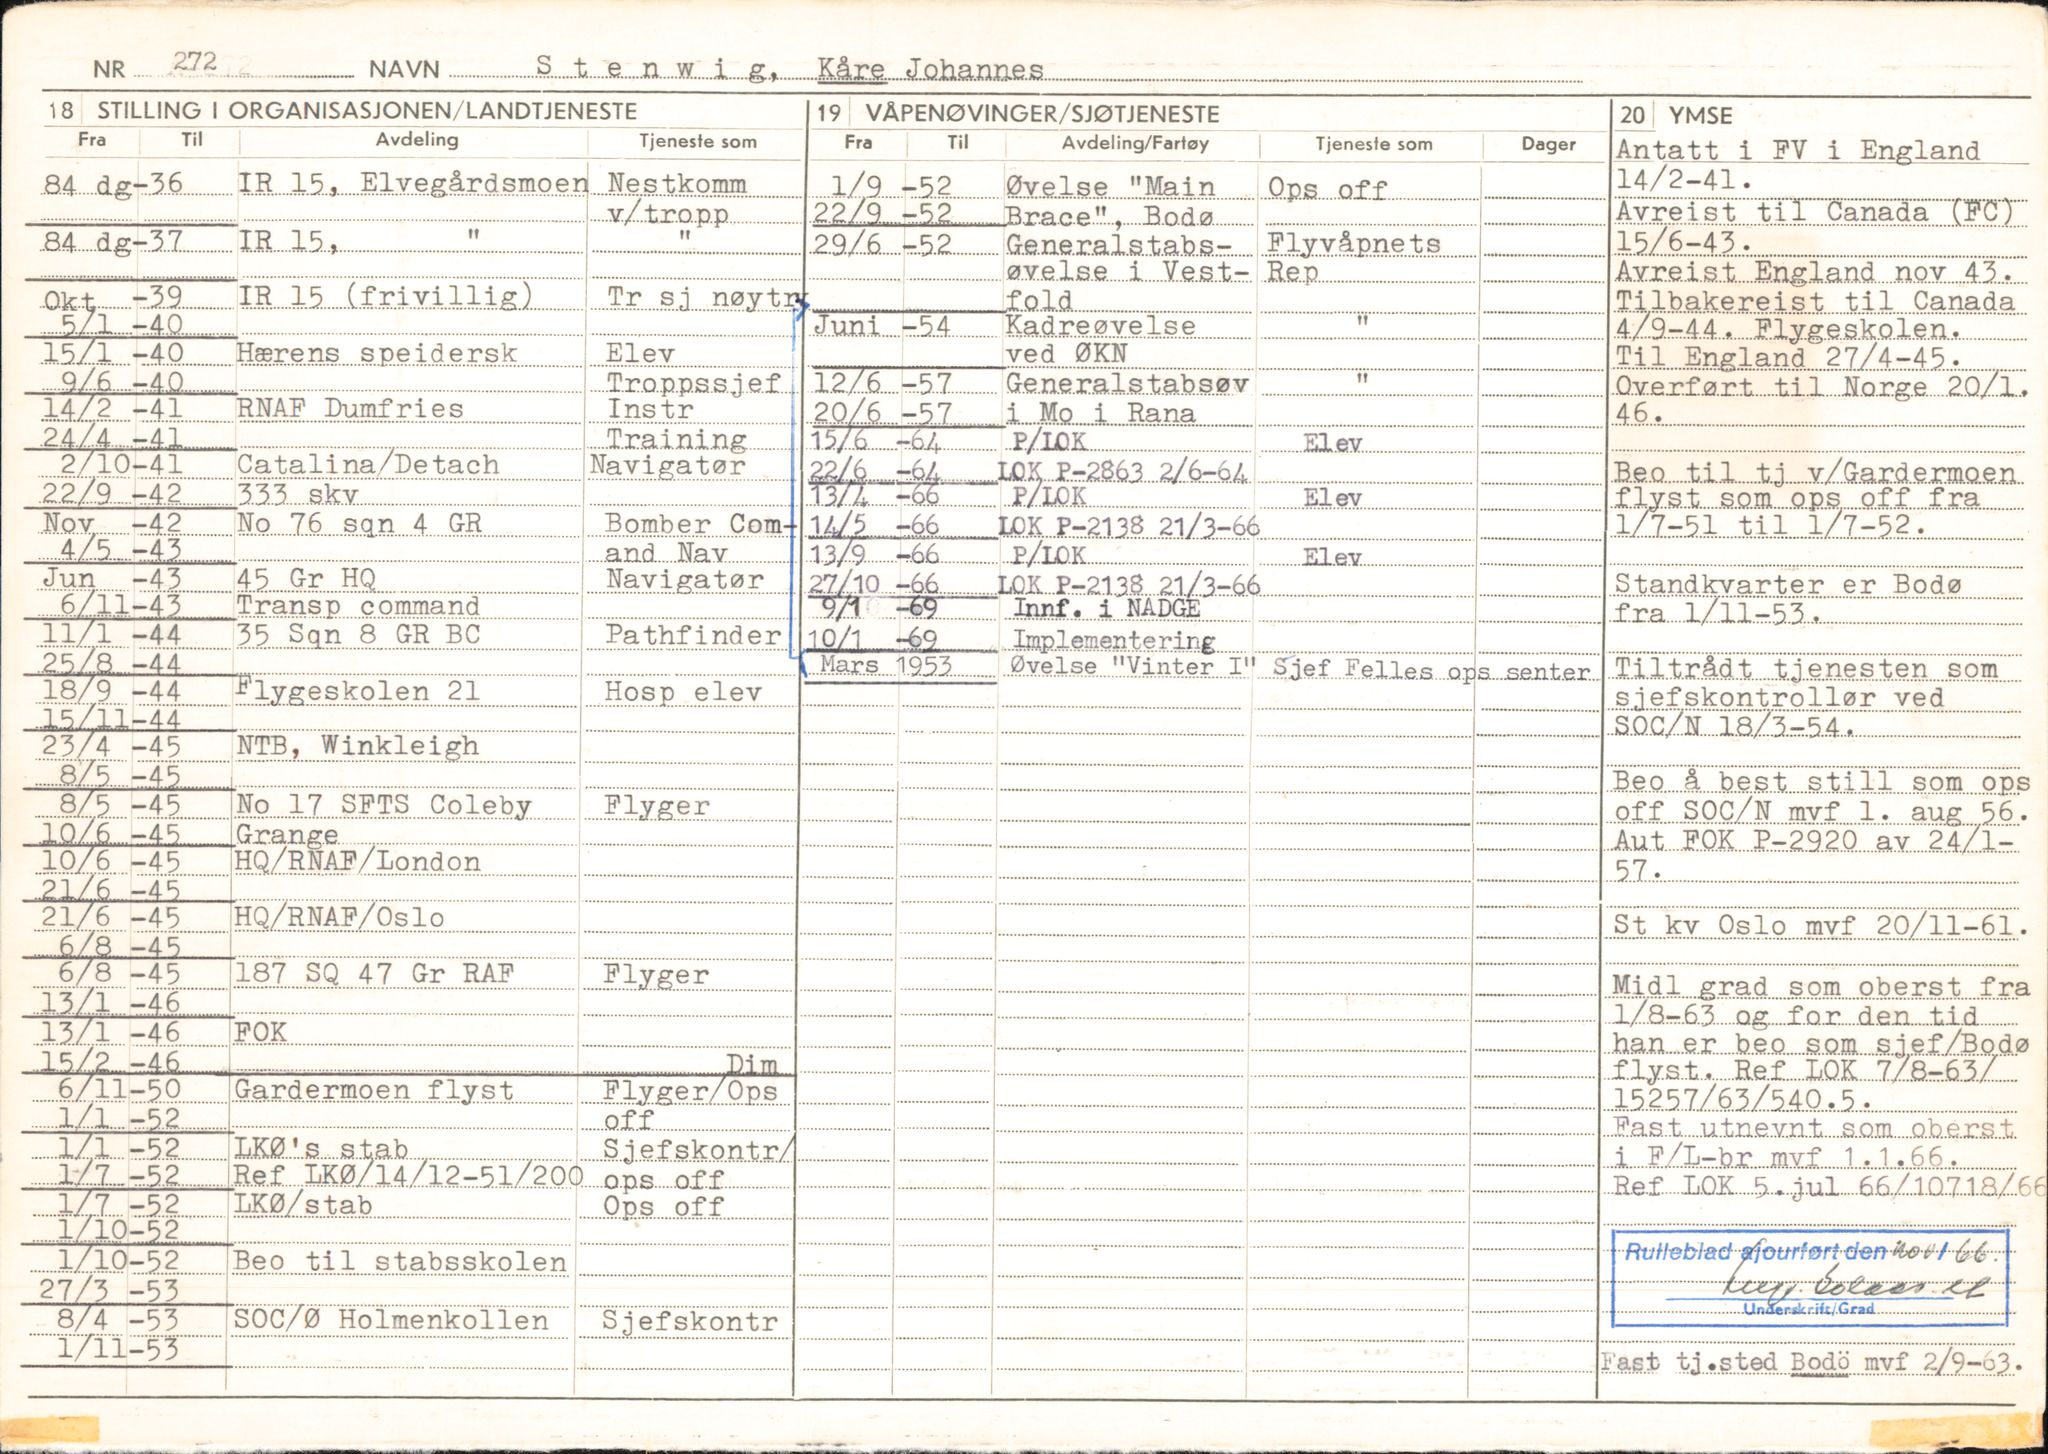 NR 272 NAVN Stenwig, Kåre Johannes
18 STILLING I ORGANISASJONEN/LANDTJENESTE
Fra Til Avdeling Tjeneste som
84 dg-36 IR 15, Elvegårdsmoen Nestkomm
v/tropp
84 dg-37 IR 15, " "
Okt -39 IR 15 (frivillig) Tr sj nøytr
5/1 -40
15/1 -40 Hærens speidersk Elev
9/6 -40 Troppssjef
14/2 -41 RNAF Dumfries Instr
24/4 -41 Training
2/10-41 Catalina/Detach Navigatør
22/9 -42 333 skv
Nov -42 No 76 sqn 4 GR Bomber Com-
4/5 -43 and Nav
Jun -43 45 Gr HQ Navigatør
6/11-43 Transp command
11/1 -44 35 Sqn 8 GR BC Pathfinder
25/8 -44
18/9 -44 Flygeskolen 21 Hosp elev
15/11-44
23/4 -45 NTB, Winkleigh
8/5 -45
8/5 -45 No 17 SFTS Coleby Flyger
10/6 -45 Grange
10/6 -45 HQ/RNAF/London
21/6 -45
21/6 -45 HQ/RNAF/Oslo
6/8 -45
6/8 -45 187 SQ 47 Gr RAF Flyger
13/1 -46
13/1 -46 FOK
15/2 -46 Dim
6/11-50 Gardermoen flyst Flyger/Ops
1/1 -52 off
1/1 -52 LKØ's stab Sjefskontr/
1/7 -52 Ref LKØ/14/12-51/200 ops off
1/7 -52 LKØ/stab Ops off
1/10-52
1/10-52 Beo til stabsskolen
27/3 -53
8/4 -53 SOC/Ø Holmenkollen Sjefskontr
1/11-53
19 VÅPENØVINGER/SJØTJENESTE
Fra Til Avdeling/Fartøy Tjeneste som Dager
1/9 -52 Øvelse "Main Ops off
22/9 -52 Brace", Bodø
29/6 -52 Generalstabs- Flyvåpnets
øvelse i Vest- Rep
fold
Juni -54 Kadreøvelse "
ved ØKN
12/6 -57 Generalstabsøv "
20/6 -57 i Mo i Rana
15/6 -64 P/LOK Elev
22/6 -64 LOK P-2863 2/6-64
13/4 -66 P/LOK Elev
14/5 -66 LOK P-2138 21/3-66
13/9 -66 P/LOK Elev
27/10 -66 LOK P-2138 21/3-66
9/1 -69 Innf. i NADGE
10/1 -69 Implementering
Mars 1953 Øvelse "Vinter I" Sjef Felles ops senter
20 YMSE
Antatt i FV i England
14/2-41.
Avreist til Canada (FC)
15/6-43.
Avreist England nov 43.
Tilbakereist til Canada
4/9-44. Flygeskolen.
Til England 27/4-45.
Overført til Norge 20/1.
46.
Beo til tj v/Gardermoen
flyst som ops off fra
1/7-51 til 1/7-52.
Standkvarter er Bodø
fra 1/11-53.
Tiltrådt tjenesten som
sjefskontrollør ved
SOC/N 18/3-54.
Beo å best still som ops
off SOC/N mvf 1. aug 56.
Aut FOK P-2920 av 24/1-
57.
St kv Oslo mvf 20/11-61.
Midl grad som oberst fra
1/8-63 og for den tid
han er beo som sjef/Bodø
flyst. Ref LOK 7/8-63/
15257/63/540.5.
Fast utnevnt som oberst
i F/L-br mvf 1.1.66.
Ref LOK 5.jul 66/10718/66
Rulleblad ajourført den nov/66.
Underskrift/Grad
Fast tj.sted Bodö mvf 2/9-63.